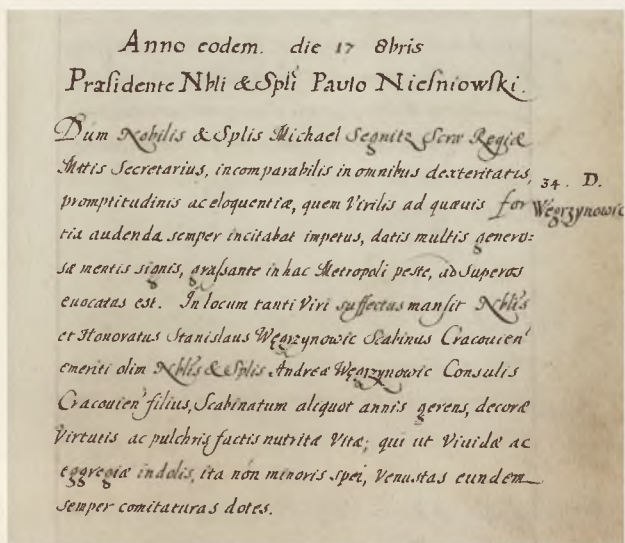 Anno eodem. die 17 8bris
Præsidente Nbli & Spli Paulo Niesniowski.
Dum Nobilis & Splis Michael Segnitz Scræ Regiæ
Mttis Secretarius, incomparabilis in omnibus dexteritatis,
promptitudinis ac eloquentiæ, quem Virilis ad quæuis for
tia audenda semper incitabat impetus, datis multis genero:
sæ mentis signis, grassante in hac Metropoli peste, ad Superos
euocatas est. In locum tanti Viri suffectus mansit Nblis
et Honoratus Stanislaus Węgrzynowic Scabinus Cracouien
emeriti olim Nblis & Splis Andreæ Węgrzynowic Consulis
Cracouien filius, Scabinatum aliquot annis gerens, decoræ
Virtutis ac pulchris factis nutritæ Vitæ; qui ut Viuidæ ac
eggregiæ indolis, ita non minoris spei, Venustas eundem
semper comitaturas dotes.
34. D.
Węgrzynowic